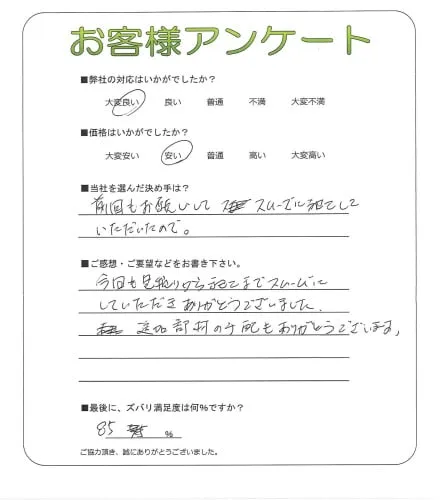 お客様アンケート
■弊社の対応はいかがでしたか？
大変良い 良い 普通 不満 大変不満
■価格はいかがでしたか？
大変安い 安い 普通 高い 大変高い
■当社を選んだ決め手は？
前回もお願いして スムーズに施工して
いただいたので。
■ご感想・ご要望などをお書き下さい。
今回も見積りから施工までスムーズに
していただきありがとうございました。
追加部材の手配もありがとうございます。
■最後に、ズバリ満足度は何％ですか？
85 %
ご協力頂き、誠にありがとうございました。